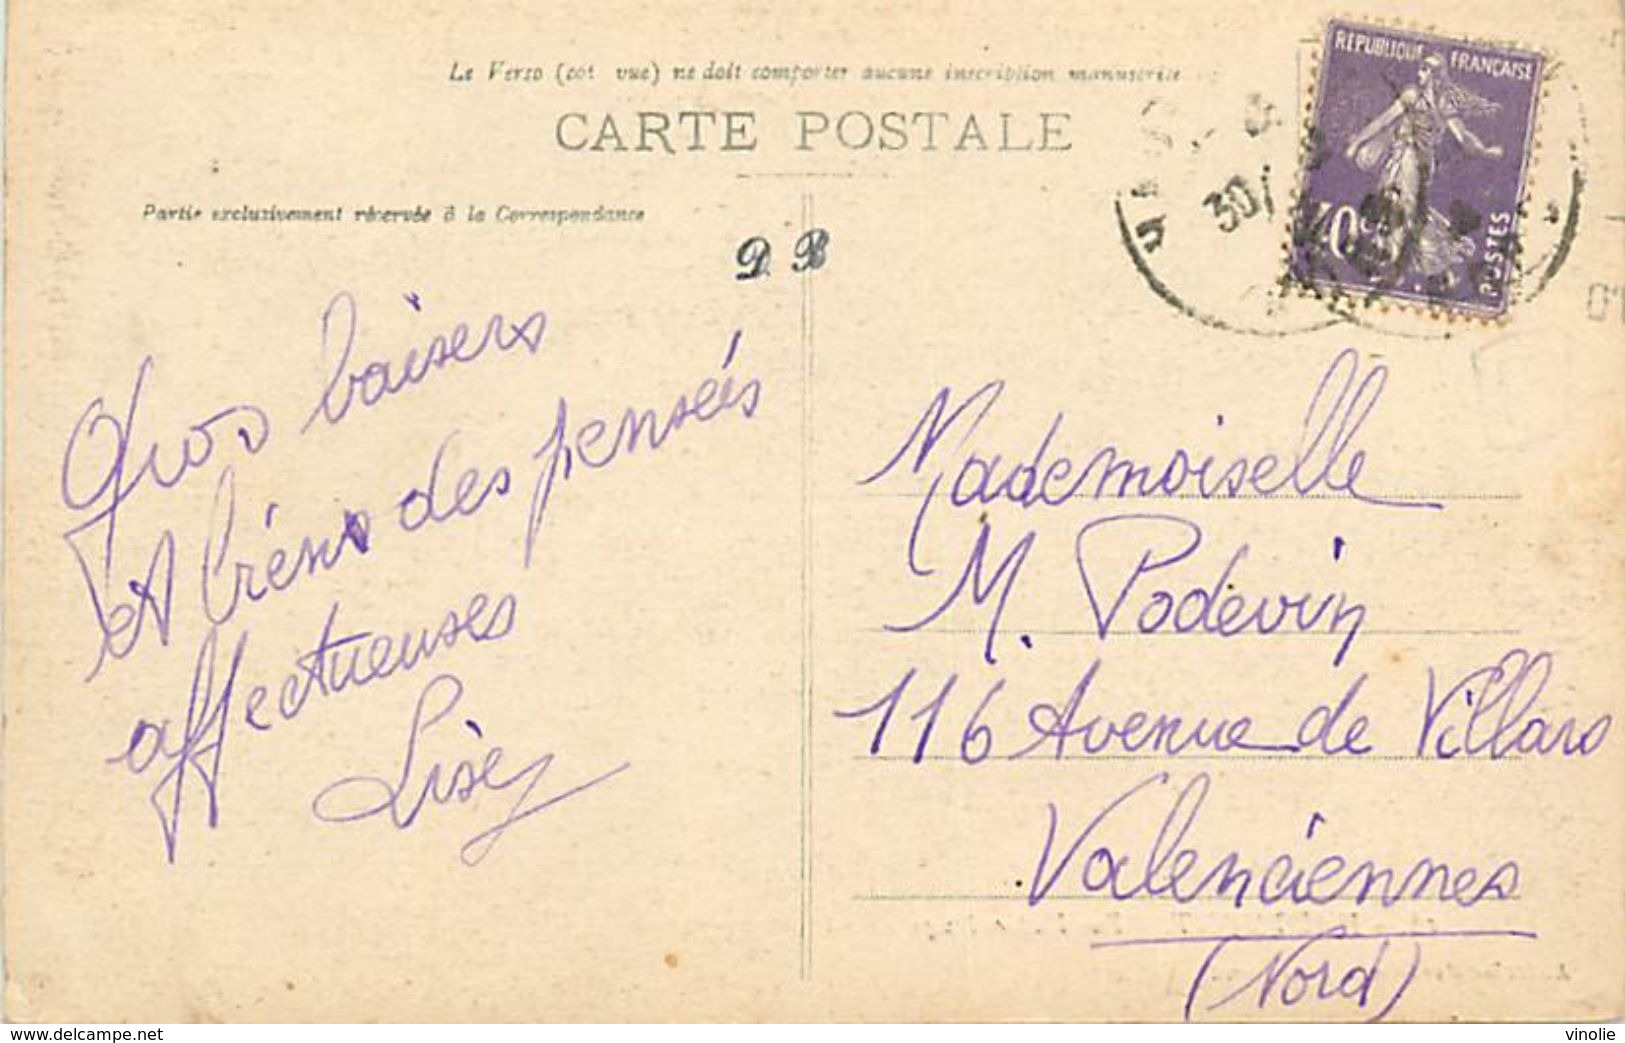 Le Verso (coté vue) ne doit comporter aucune inscription manuscrite
CARTE POSTALE
REPUBLIQUE FRANÇAISE
40c
POSTES
30
Partie exclusivement réservée à la Correspondance
D. B
Gros baisers
et biens des pensées
affectueuses
Lisey
Mademoiselle
M. Podevin
116 Avenue de Villars
Valenciennes
(Nord)
www.delcampe.net
vinolie